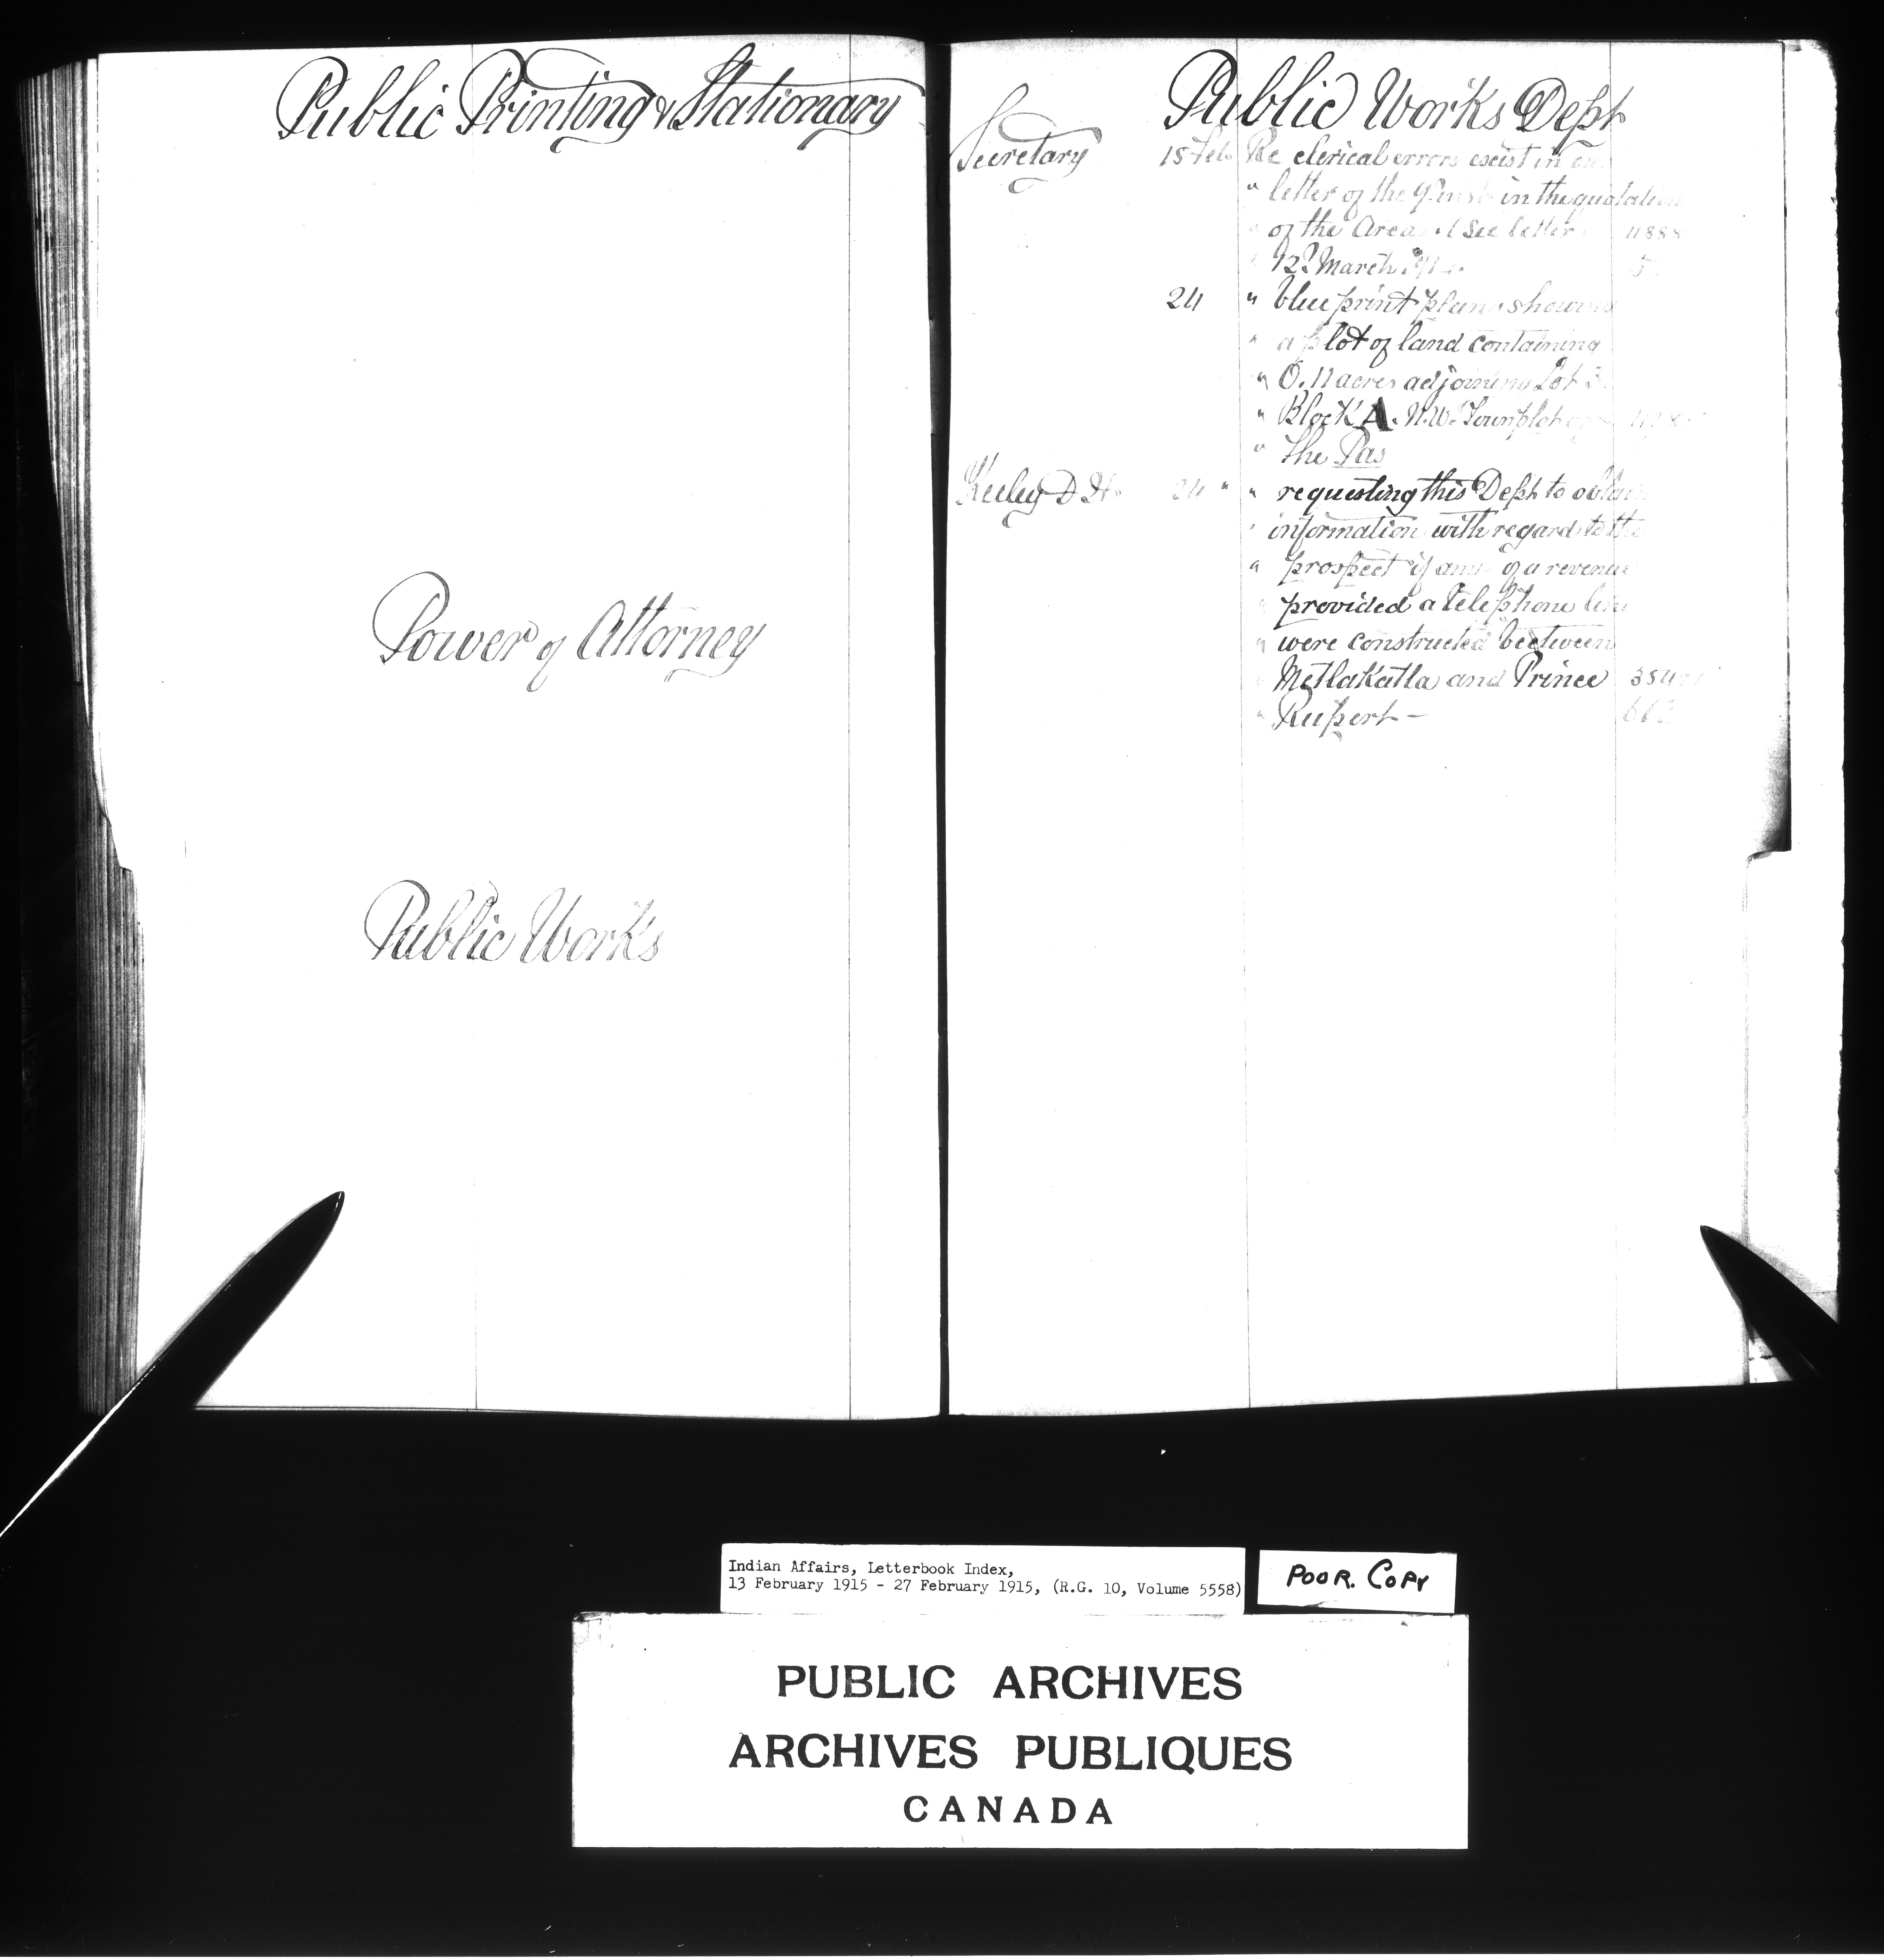 Public Printing & Stationary
Power of Attorney
Public Works
Public Works Dept
Secretary 15 Feb Re clerical errors exist in
" letter of the in the quotation
" of the Area. (See letter
" 12th March
24 " blue print plan showing
" a plot of land containing
" 0.11 acres adjoining Lot 3
" Block A. N.W. Townplot of
" The Pas
Keeley D H. 24 " " requesting this Dept to obtain
" information with regard to the
" prospect if any of a revenue
" provided a telephone line
" were constructed beetween
" Metlakatla and Prince
" Rupert —
Indian Affairs, Letterbook Index,
13 February 1915 - 27 February 1915, (R.G. 10, Volume 5558)
POOR. COPY
PUBLIC ARCHIVES
ARCHIVES PUBLIQUES
CANADA